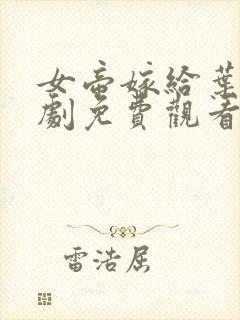 女帝嫁給葉
劇免費觀看
雷浩屈